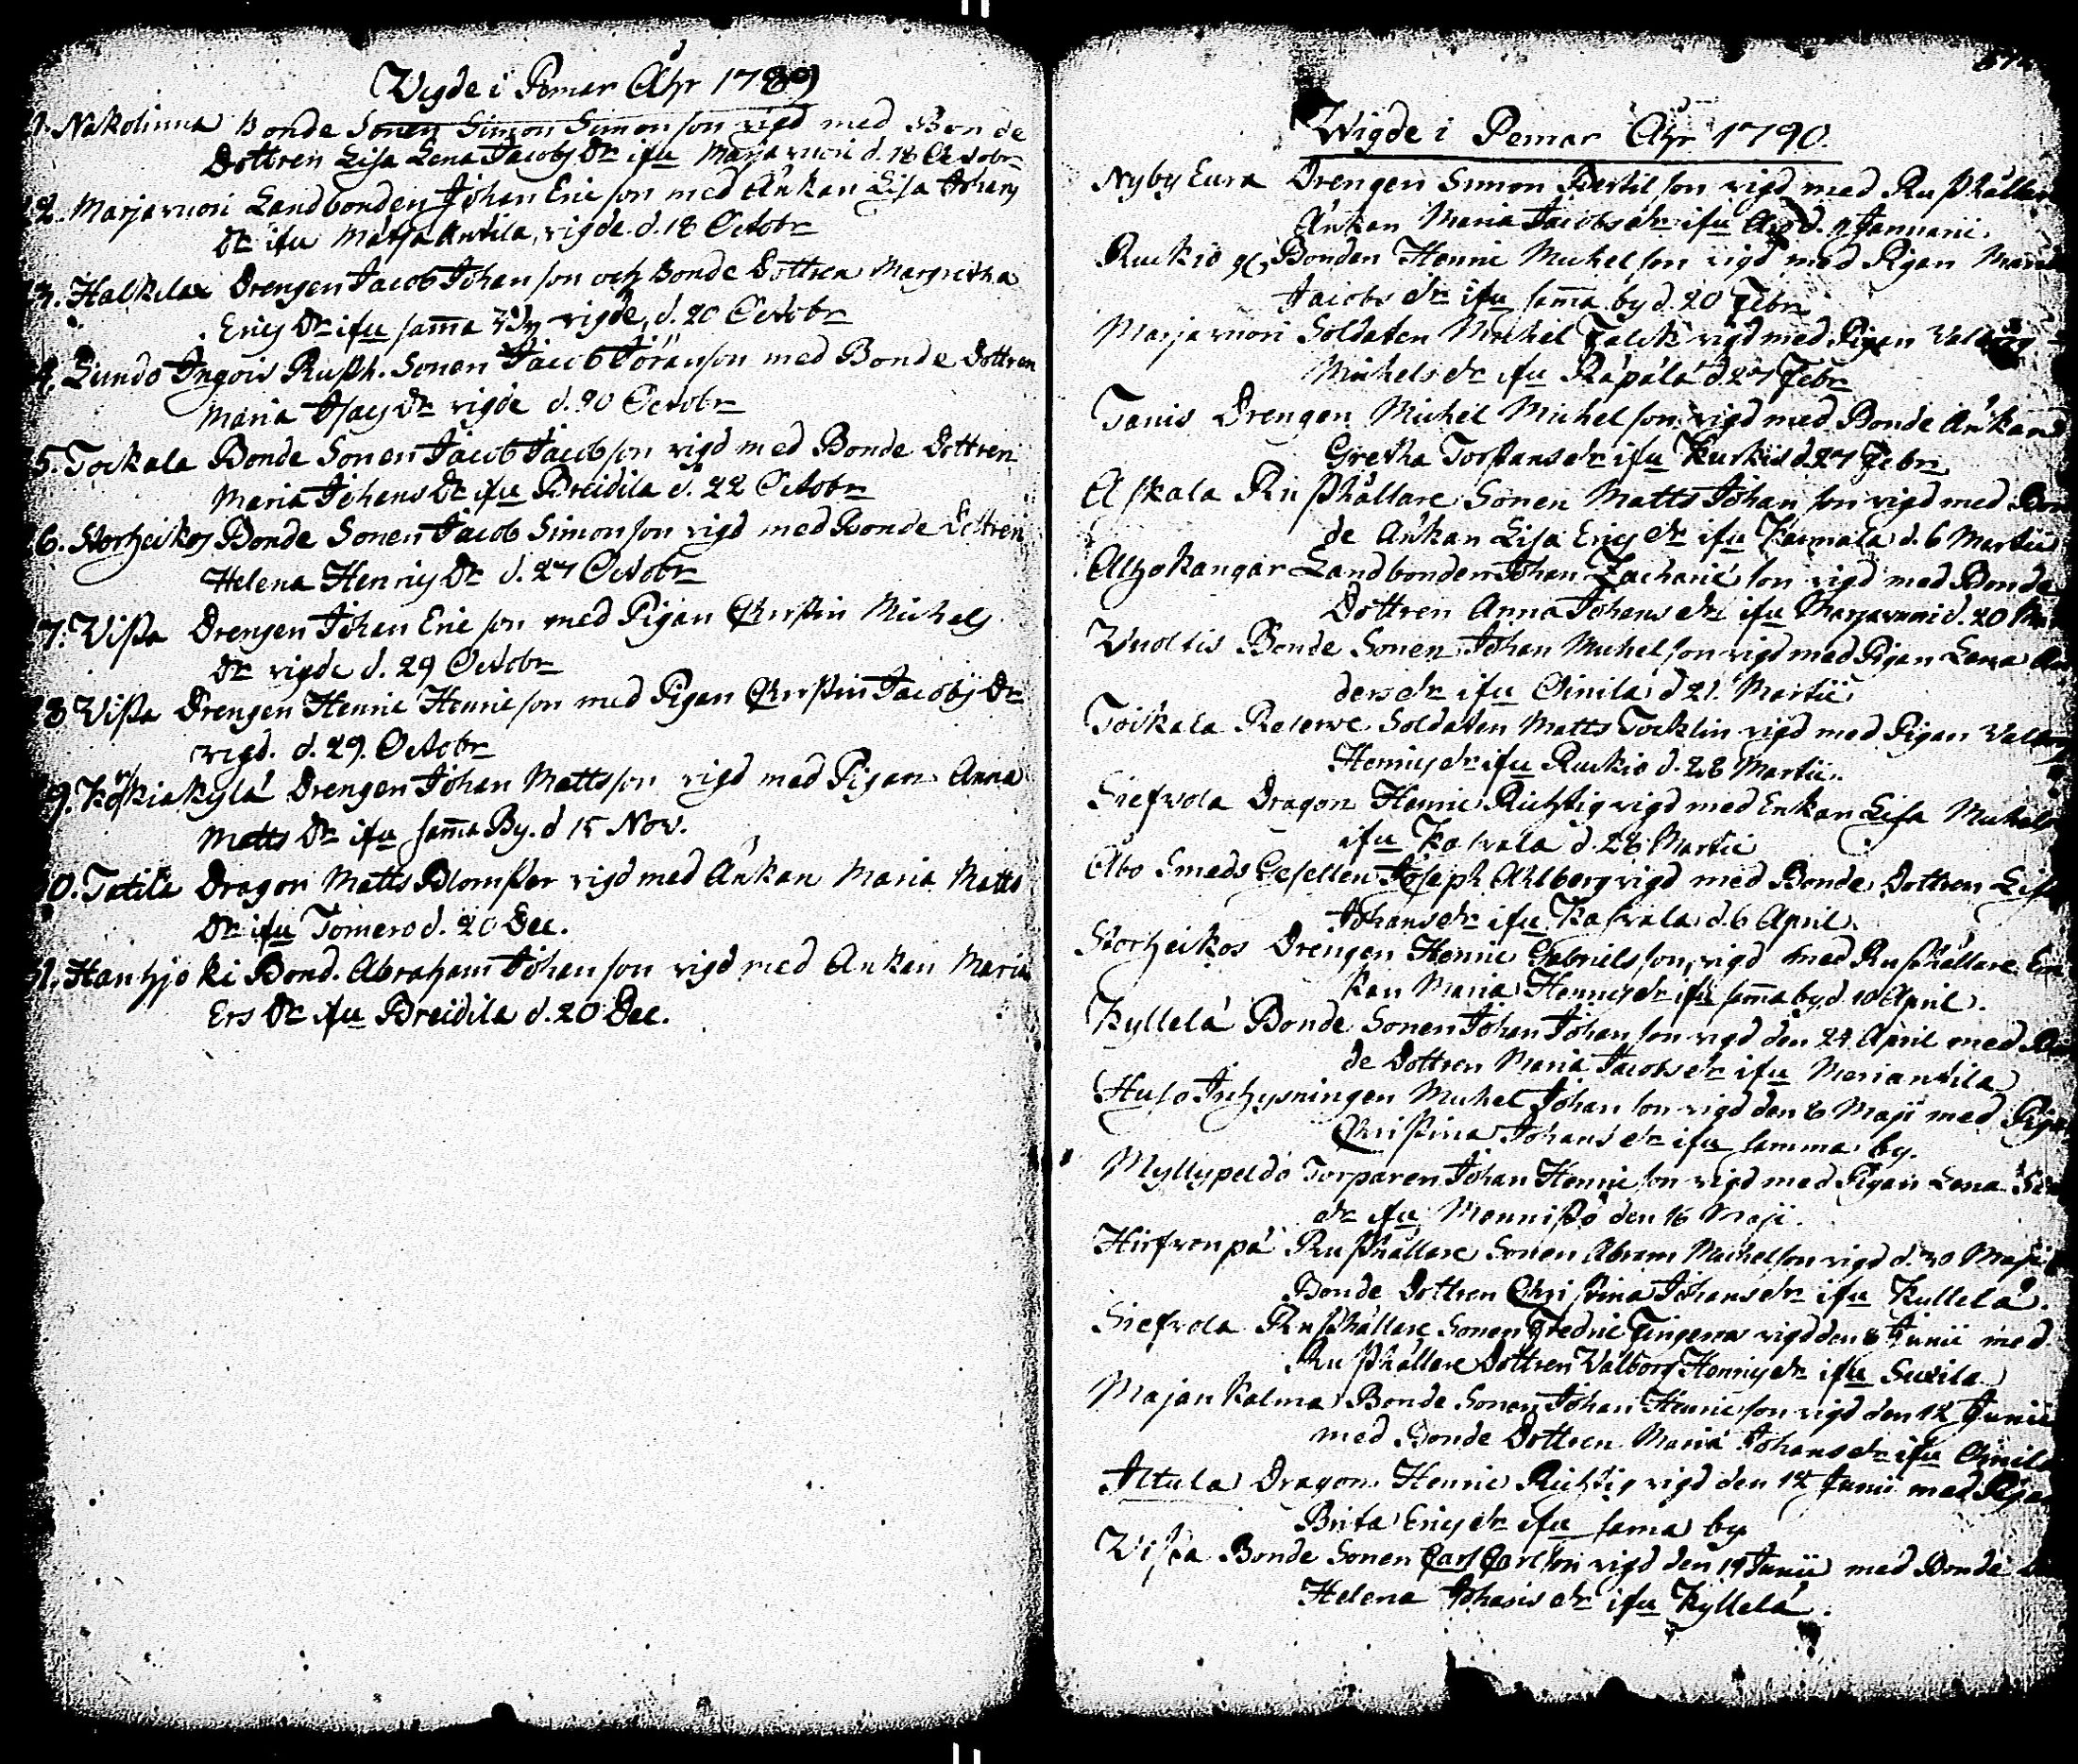 Wigde i Pemar Åhr 1789
1. Nakolinna Bonde Sonen Simon Simonson vigd med Bonde
Dottren Lisa Lena Jacobs Dr ifrån Marjavuori d. 18 Octobr
2. Marjavuori Landbonden Johan Ericson med Änkan Lisa Johans
Dr ifrån Marja Antila, vigde d. 18 Octobr
3. Halkilax Drengen Jacob Johanson och Bonde Dottren Margretha
Erics Dr ifrån sam̄a By vigde, d. 20 Octobr
4. Lundo Ingois Rusth. Sonen Jacob Göranson med Bonde Dottren
Maria Isacs Dr vigde d. 20 Octobr
5. Tockala Bonde Sonen Jacob Jacobson vigd med Bonde Dottren
Maria Johans Dr ifrån Breidila d. 22 Octobr
6. Storheikos Bonde Sonen Jacob Simonson vigd med Bonde Dottren
Helena Henrics Dr d. 27 Octobr
7. Vista Drengen Johan Ericson med Pigan Christin Michels
Dr vigde d. 29 Octobr
8 Vista Drengen Henric Henricson med Pigan Christin Jacobs Dr
vigd. d. 29. Octobr
9. Drengen Johan Mattsson vigd med Pigan Anna
Matts Dr ifrån sam̄a By. d 15 Nov.
10. Tatila Dragon Matts Blomster vigd med Änkan Maria Matts
Dr ifrån Tömero d. 20 Dec.
11. Hanhjoki Bond. Abraham Johanson vigd med Änkan Maria
Ers Dr ifrån Breidila d. 20 Dec.
Wigde i Pemar Åhr 1790.
Nyby Eura Drengen Simon Bertilson vigd med Rusthållare
Änkan Maria Jacobsdr ifrån d. Januarii.
Ruckio Bonden Henric Michelson vigd med Pigan Maria
Jacobsdr ifrån sam̄a by d. 20 Febr
Marjavuori Soldaten Michel Falck vigd med Pigan Valborg
Michelsdr ifrån Räpälä d 27 Febr
Tanis Drengen Michel Michelson vigd med Bonde Änkan
Gretha ifrån Kurkis d 27 Febr
Askala Rusthållare Sonen Matts Johanson vigd med Bon
de Änkan Lisa Ericsdr ifrån Karmala d. 6 Martii
Altzokangar Landbonden Johan Zachariëson vigd med Bonde
Dottren Anna Johansdr ifrån Marjavuori d. 20
Wuoltis Bonde Sonen Johan Michelson vigd med Pigan Lena An
dersdr ifrån Oinila d 21. Martii
Toikala Reserve Soldaten Matts Tocklin vigd med Pigan
Henricsdr ifrån Ruckio d. 28 Martii.
Siefvola Dragon Henric Richtig vigd med Enkan Lisa Michels
ifrån d. 28 Martii
Åbo Smeds Gesellen Joseph Ahlberg vigd med Bonde Dottren Lisa
Johansdr ifrån d. 6 April.
Storheikos Drengen Henric Gabrielsson, vigd med Rusthållare En
kan Maria Henricsdr ifrån sam̄a by d. 10 April.
Kyllelä Bonde Sonen Johan Johanson vigd den 24 April med
de Dottren Maria Jacobsdr ifrån Meriantila
Huso Inhysningen Michel Johanson vigd den 8 Maji med Pigan
Christina Johansdr ifrån samma by.
Myllypeldo Torparen Johan Henricson vigd med Pigan Lena
dr ifrån Mennistö den 16 Maji.
Hirfvonpä Rusthållare Sonen Abram Michelson vigd d. 30 Maji
Bonde Dottren Christina Johansdr ifrån Kullela.
Siefvola Rusthållare Sonen Fredric vigd den 8 Junii med
Rusthållare Dottren Valborg Henricsdr ifrån
Majankalma Bonde Sonen Johan Henricson vigd den 12 Junii
med Bonde Dottren Maria Johansdr ifrån Oinila
Iltula Dragon Henric Richtig vigd den 12 Junii med Pigan
Brita Ericsdr ifrån sama by
Vista Bonde Sonen Carl Carlson vigd den 19 Junii med Bonde
Helena Johansdr ifrån Kyllelä.